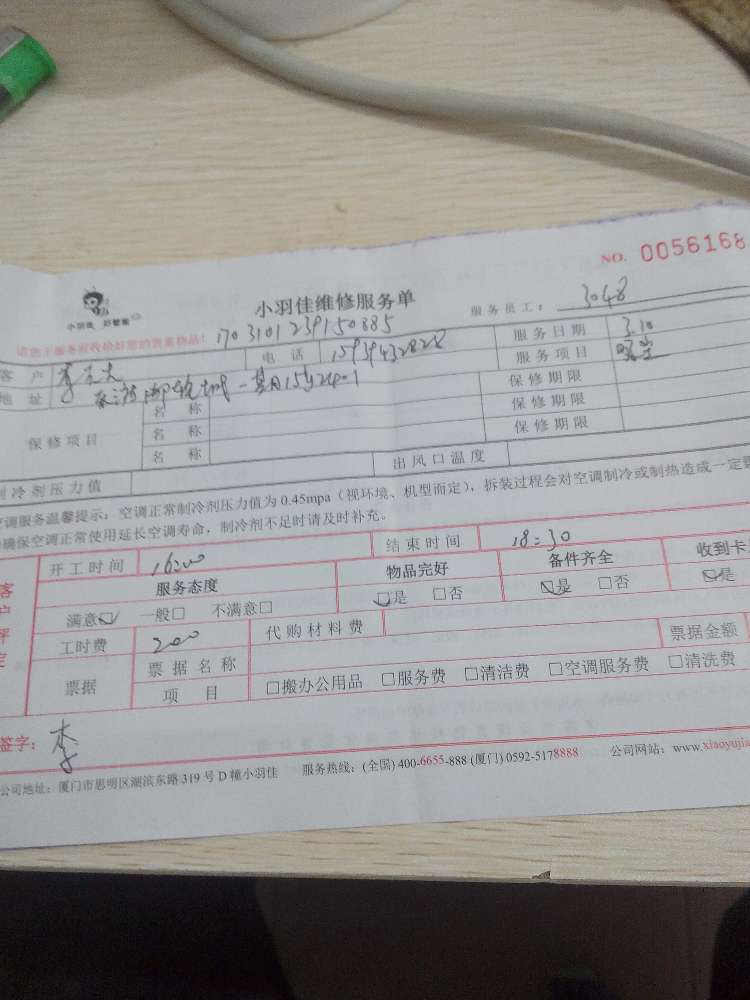 NO. 0056168
小羽佳 好管家
小羽佳维修服务单
服务员工： 3048
请您于服务前收拾好您的贵重物品！ 1703101239150885
客 户 李 电 话 15939432828 服务日期 3.10
地 址 服务项目
保修项目
名 称 保修期限
名 称 保修期限
名 称 保修期限
制冷剂压力值 出风口温度
空调服务温馨提示：空调正常制冷剂压力值为 0.45mpa（视环境、机型而定），拆装过程会对空调制冷或制热造成一定
确保空调正常使用延长空调寿命，制冷剂不足时请及时补充。
客户评定
开工时间 16:00 结束时间 18:30
服务态度 物品完好 备件齐全 收到卡
满意☑ 一般□ 不满意□ ☑是 □否 ☑是 □否 ☑是
工时费 200 代购材料费 票据金额
票据
票据名称
项 目 □搬办公用品 □服务费 □清洁费 □空调服务费 □清洗费
签字： 李
公司地址：厦门市思明区湖滨东路 319 号 D 幢小羽佳 服务热线：(全国) 400-6655-888 (厦门) 0592-5178888 公司网站：www.xiaoyujia